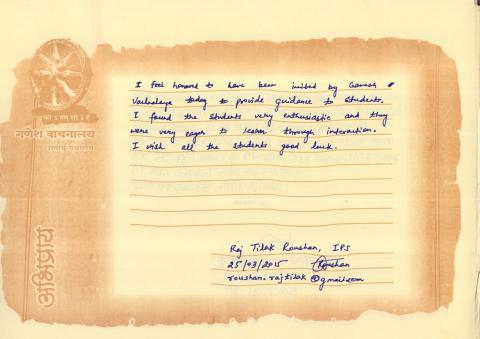 गणेश वाचनालय
अभिप्राय
I feel honored to have been invited by Ganesh
Vachalaya today to provide guidance to students.
I found the students very enthusiastic and they
were very eager to learn through interaction.
I wish all the students good luck.
Raj Tilak Roushan, IPS
25/03/2015 Roushan
roushan.rajtilak@gmail.com